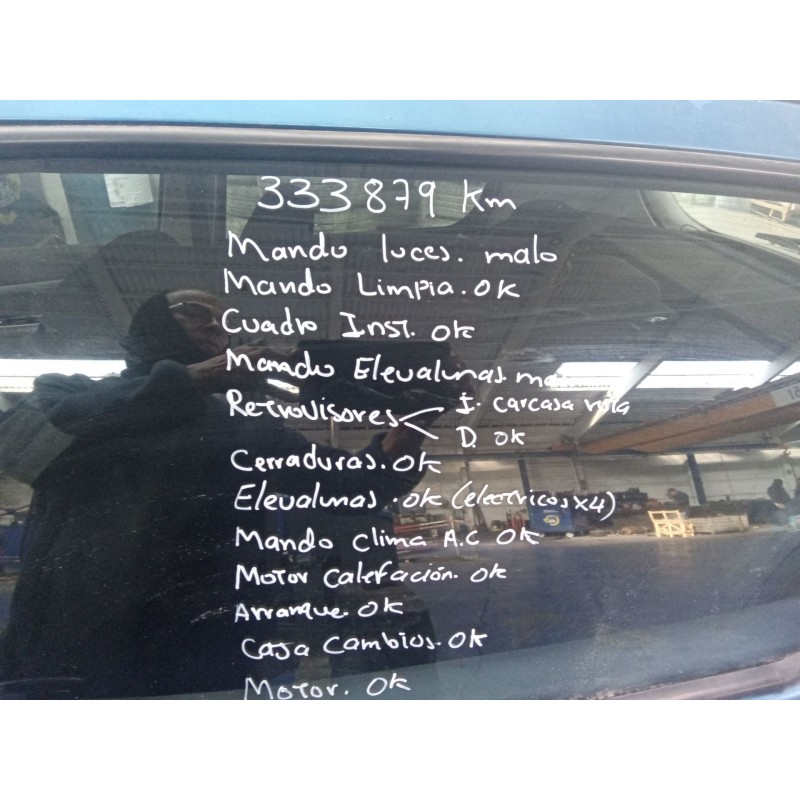 333879 Km
Mando luces. malo
Mando Limpia. OK
Cuadro Inst. Ok
Mando Elevalunas
Retrovisores I. carcasa rota
D. OK
Cerraduras. OK
Elevalunas. OK (electricos x4)
Mando Clima A.C OK
Motor Calefación. OK
Arranque. OK
Caja Cambios. OK
Motor. OK